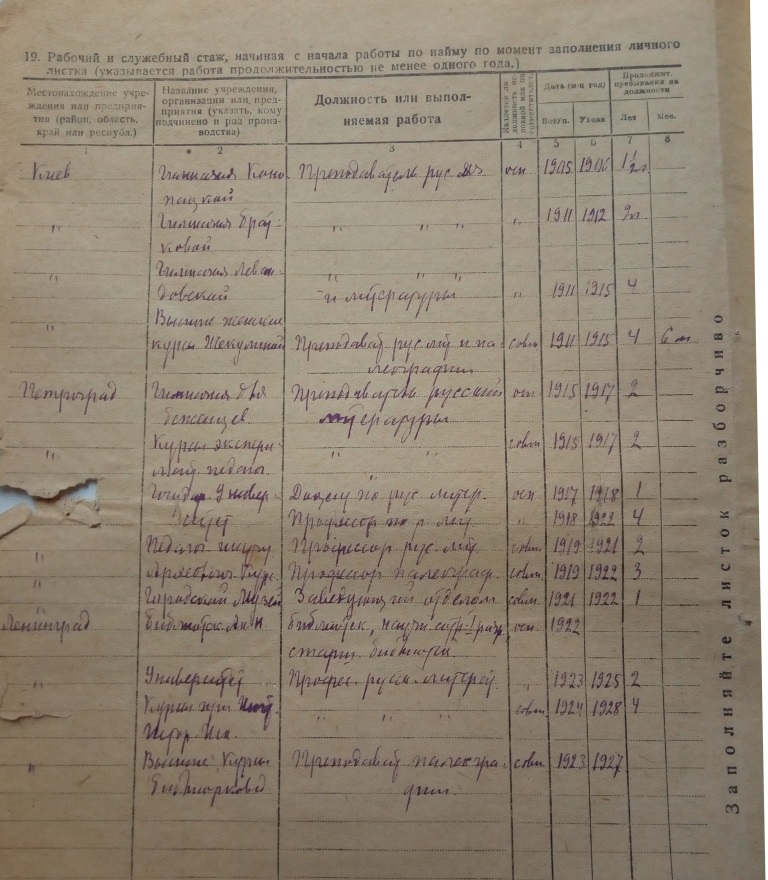 19. Рабочий и служебный стаж, начиная с начала работы по найму по момент заполнения личного
листка (указывается работа продолжительностью не менее одного года.)
Местонахождение учре-
ждения или предприя-
тия (район, область,
край или республ.)
Название учреждения,
организации или пред-
приятия (указать, кому
подчинено и род произ-
водства)
Должность или выпол-
няемая работа
Дата (м-ц год)
Вступ. Ухода
Продолжит.
пребывания на
должности
Лет Мес.
1 2 3 4 5 6 7 8
Киев Гимназия Преподаватель рус. яз. осн 1905 1906 1½
" Гимназия " " " " 1911 1912
Гимназия Леван-
довской и литературы " 1911 1915 4
" Высшие женские
курсы Жекулиной Преподават. рус. лит. и па- совм 1911 1915 4 6 м
леографии
Петроград Гимназия для Преподаватель русской осн 1915 1917 2
беженцев литературы
" Курсы экспери- " " совм 1915 1917 2
мент. педагог.
Универ- Доцент по рус. литер. осн 1917 1918 1
ситет Профессор по р. лит. " 1918 1922 4
" Педагог. инстит. Профессор рус. лит. совм. 1919 1921 2
" Археолог. Профессор палеограф. совм. 1919 1922 3
Городской Музей Заведующий отделом совм. 1921 1922 1
Ленинград Библиотека А.Н. библиотек, науч. сотр. I разр. осн 1922
старш. библиотек.
" Университет Професс. русск. литерат. " 1923 1925 2
" Курсы при Инст. " " " совм 1924 1928 4
Истор.
" Высшие Курсы Преподават. палеогра- совм. 1923 1927
Библиотековед. фии.
Заполняйте листок разборчиво